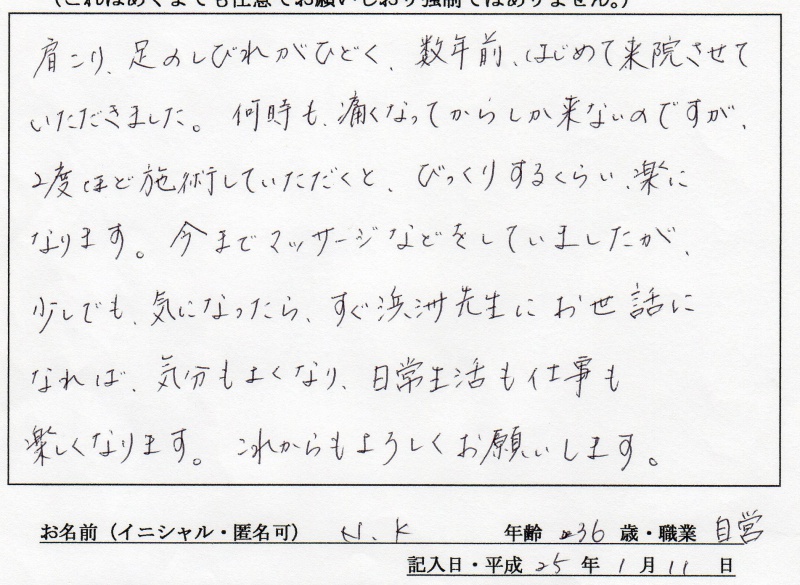 (これはあくまでも任意でお願いしおり強制ではありません。)
肩こり、足のしびれがひどく、数年前、はじめて来院させて
いただきました。何時も、痛くなってからしか来ないのですが、
2度ほど施術していただくと、びっくりするくらい、楽に
なります。今までマッサージなどをしていましたが、
少しでも、気になったら、すぐ浜洲先生にお世話に
なれば、気分もよくなり、日常生活も仕事も
楽しくなります。これからもよろしくお願いします。
お名前（イニシャル・匿名可） N.K 年齢 36 歳・職業 自営
記入日・平成 25 年 1 月 11 日